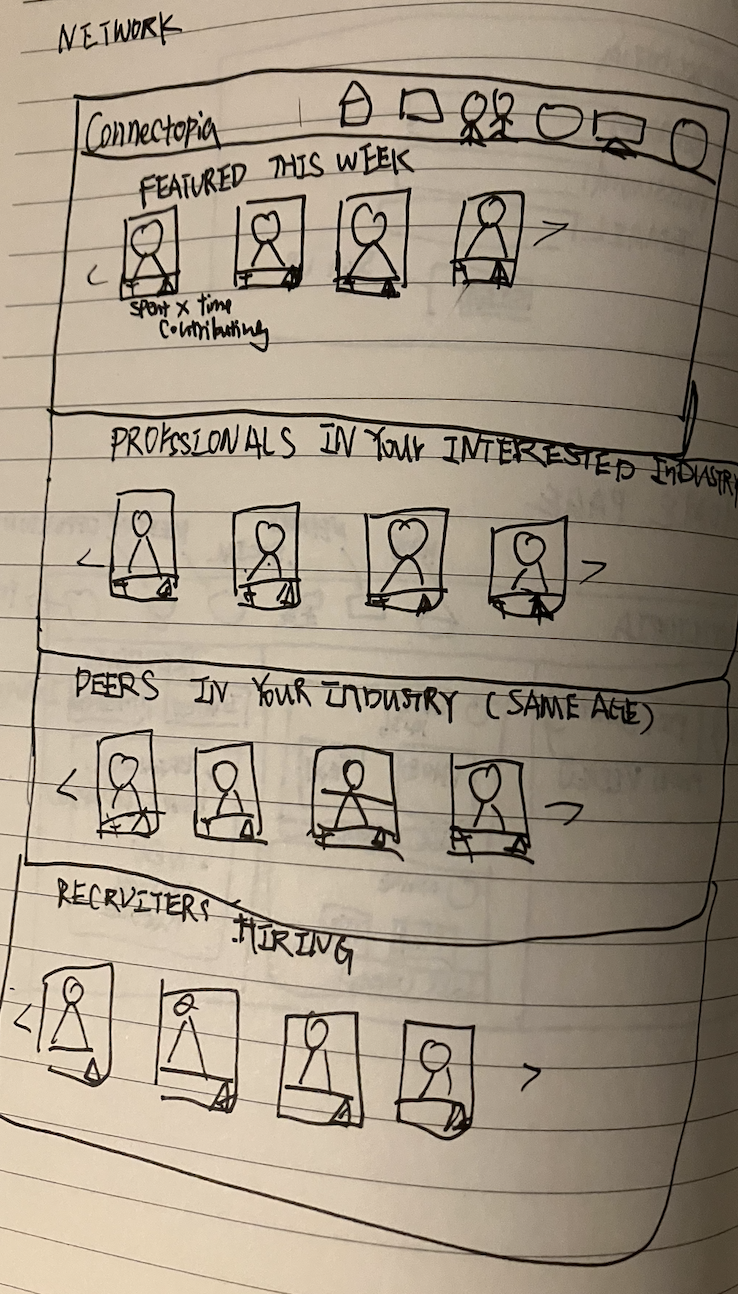 NETWORK
Connectopia
FEATURED THIS WEEK
spent x time
contributing
PROFSSIONALS IN Your INTERESTED INDUSTRY
PEERS IN YOUR INDUSTRY (SAME AGE)
RECRUITERS HIRING